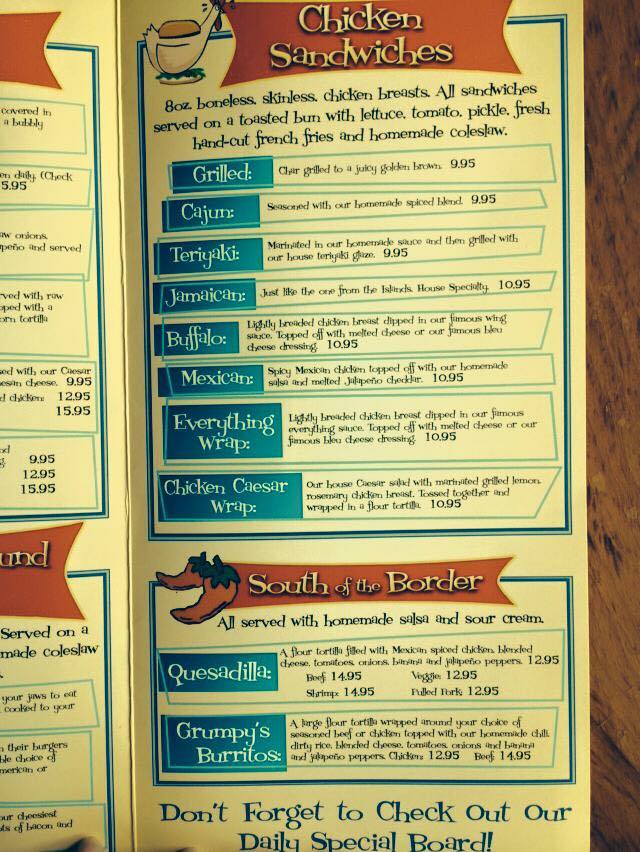 covered in
a bubbly
en daily. (Check
5.95
aw onions,
peño and served
ved with raw
pped with a
orn tortilla
sed with our Caesar
esan cheese. 9.95
d chicken: 12.95
15.95
9.95
12.95
15.95
und
Served on a
made coleslaw
your jaws to eat
cooked to your
n their burgers
ble choice of
merican or
our cheesiest
ts of bacon and
Chicken
Sandwiches
8oz. boneless, skinless, chicken breasts. All sandwiches
served on a toasted bun with lettuce, tomato, pickle, fresh
hand-cut french fries and homemade coleslaw.
Grilled: Char grilled to a juicy golden brown. 9.95
Cajun: Seasoned with our homemade spiced blend. 9.95
Teriyaki: Marinated in our homemade sauce and then grilled with
our house teriyaki glaze. 9.95
Jamaican: Just like the one from the Islands. House Specialty. 10.95
Buffalo: Lightly breaded chicken breast dipped in our famous wing
sauce. Topped off with melted cheese or our famous bleu
cheese dressing. 10.95
Mexican: Spicy Mexican chicken topped off with our homemade
salsa and melted Jalapeño cheddar. 10.95
Everything
Wrap: Lightly breaded chicken breast dipped in our famous
everything sauce. Topped off with melted cheese or our
famous bleu cheese dressing. 10.95
Chicken Caesar
Wrap: Our house Caesar salad with marinated grilled lemon
rosemary chicken breast. Tossed together and
wrapped in a flour tortilla. 10.95
South of the Border
All served with homemade salsa and sour cream.
Quesadilla: A flour tortilla filled with Mexican spiced chicken, blended
cheese, tomatoes, onions, banana and jalapeño peppers. 12.95
Beef: 14.95 Veggie: 12.95
Shrimp: 14.95 Pulled Pork: 12.95
Grumpy's
Burritos: A large flour tortilla wrapped around your choice of
seasoned beef or chicken topped with our homemade chili,
dirty rice, blended cheese, tomatoes, onions and banana
and jalapeño peppers. Chicken: 12.95 Beef: 14.95
Don't Forget to Check Out Our
Daily Special Board!